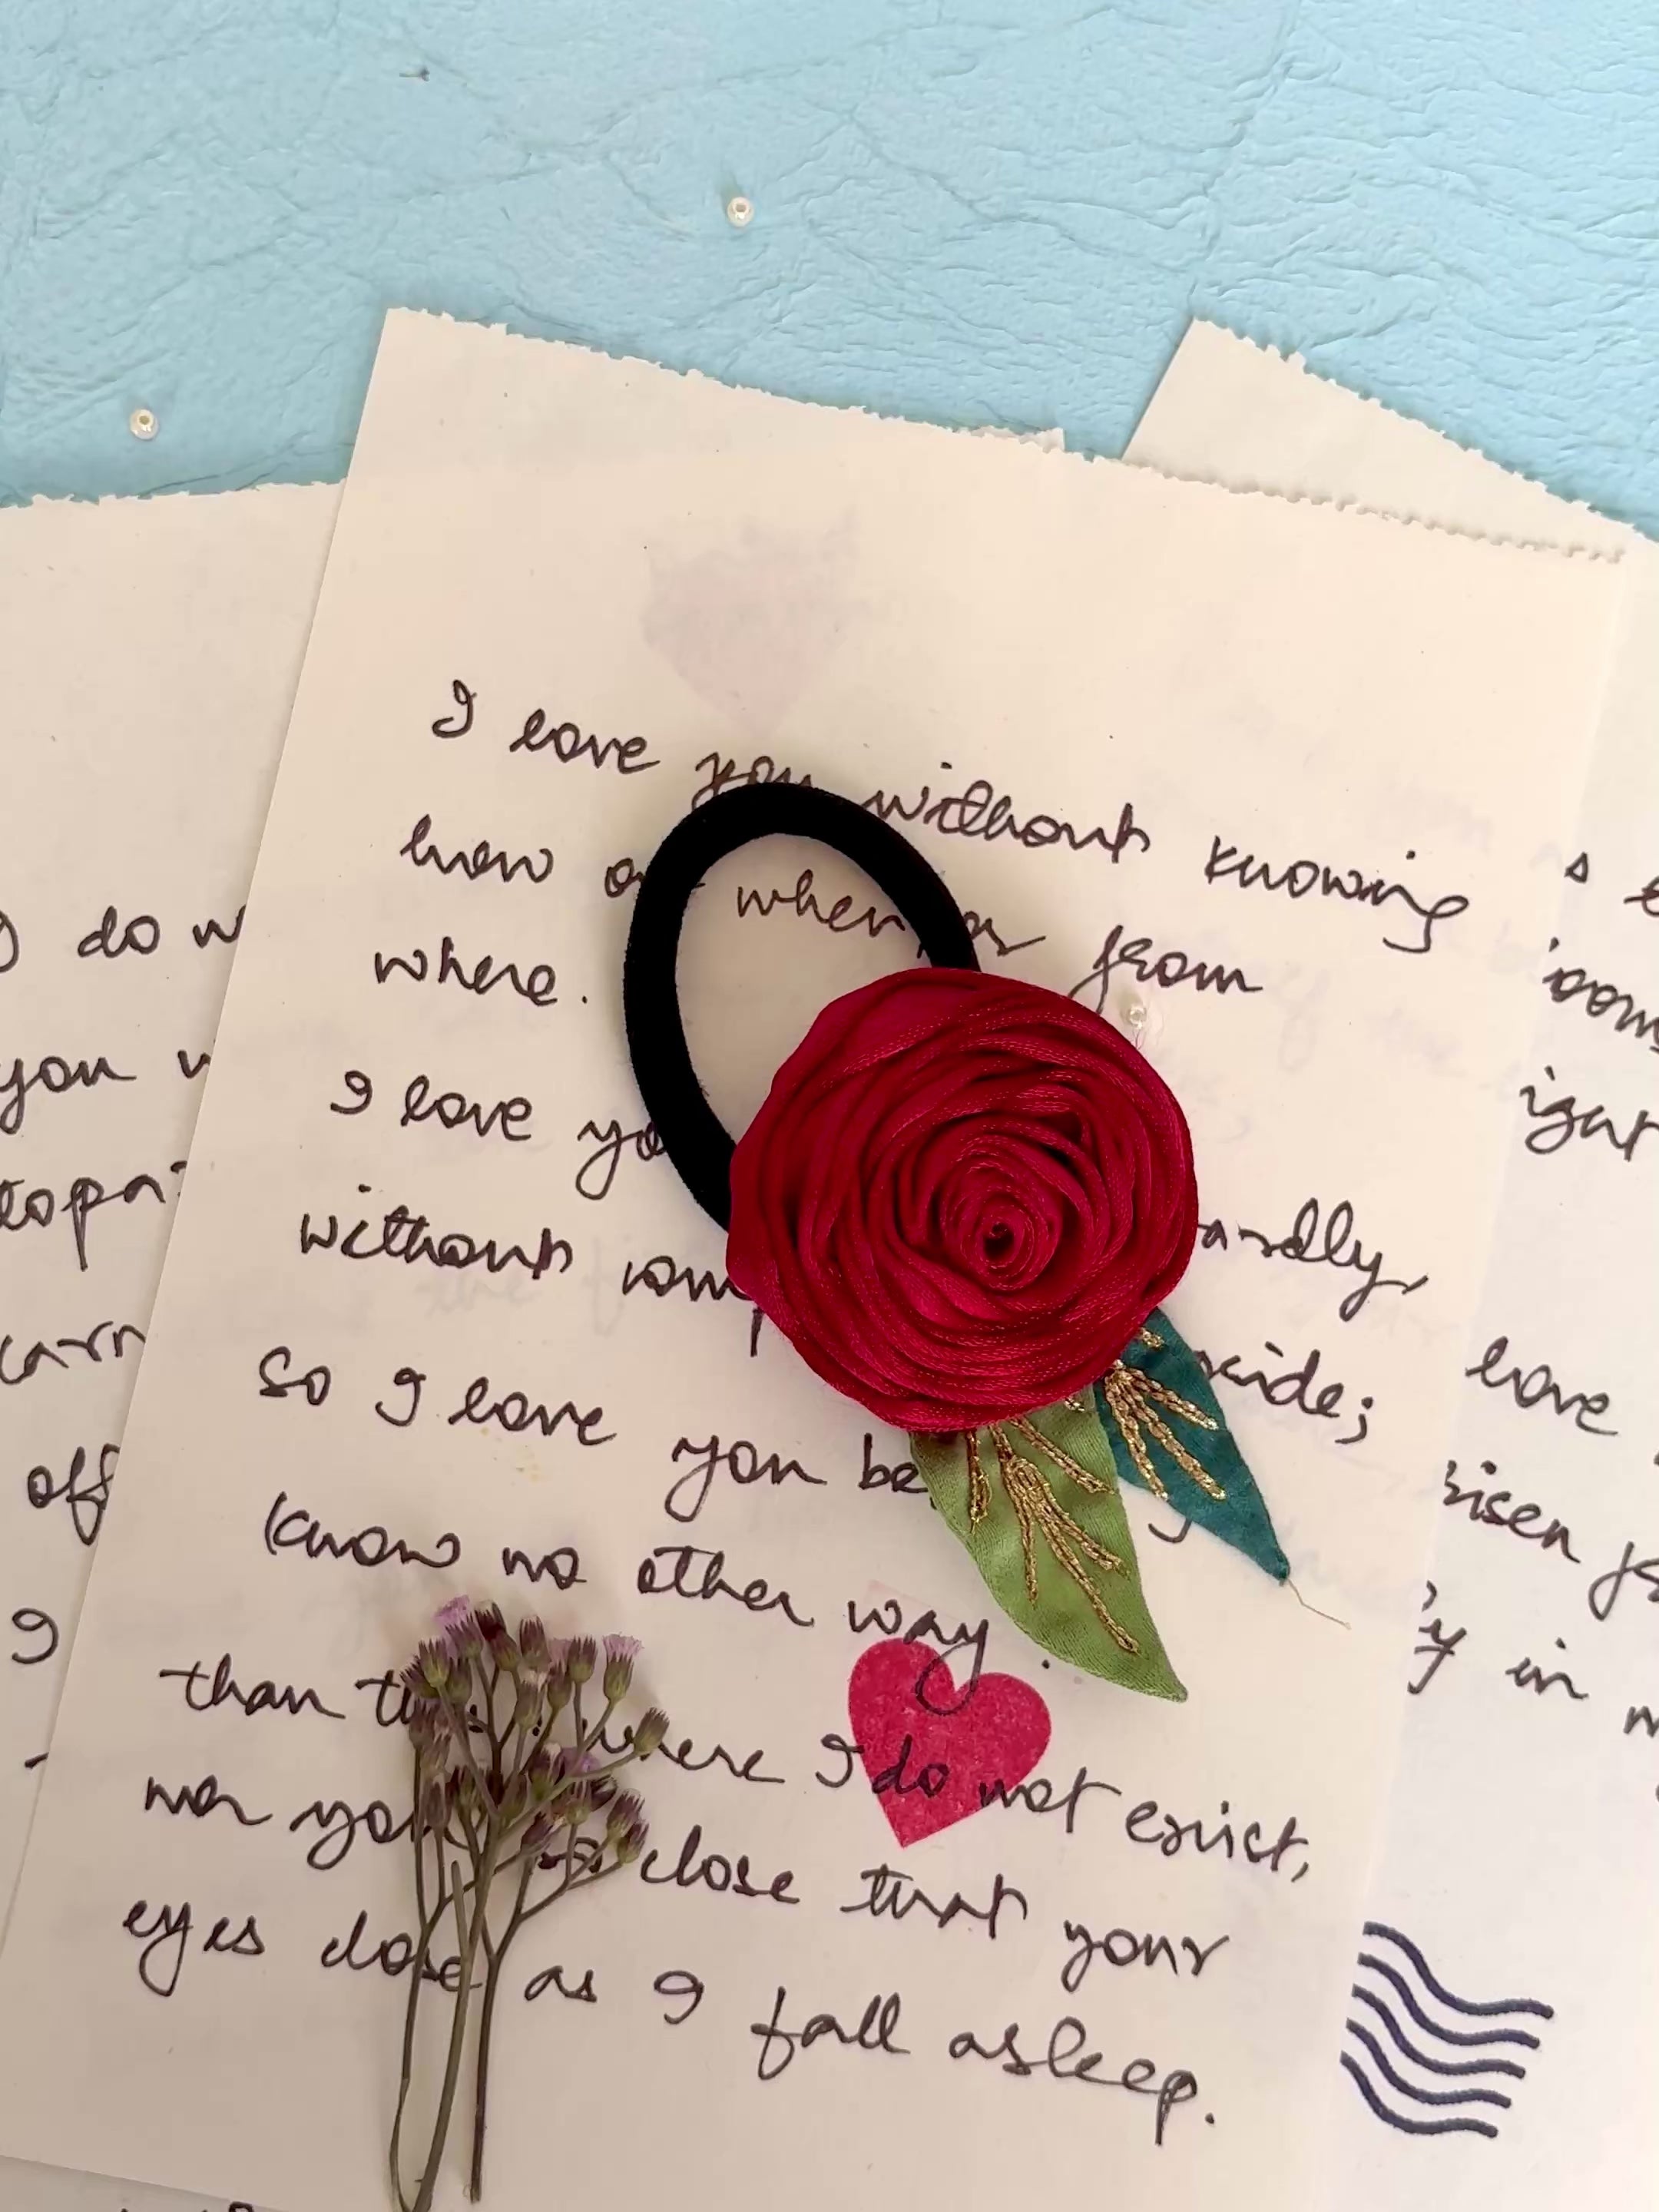 I love you without knowing
how or when, or from
where.
I love yo ardly,
without com p xide;
so I love you be
know no other way.
than th where I do not exist,
nor you so close that your
eyes close as I fall asleep.
do w
you w
topa
carn
off
I
love
risen f
y in